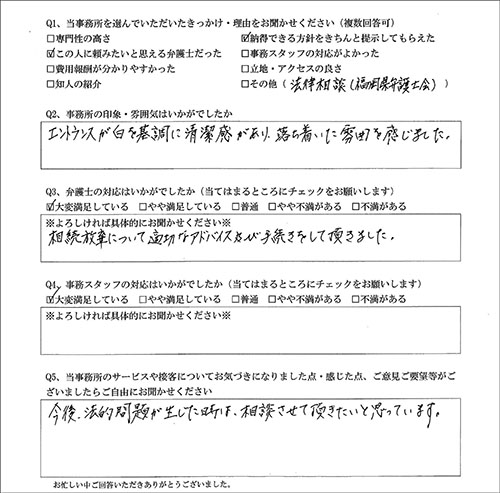 Q1、当事務所を選んでいただいたきっかけ・理由をお聞かせください（複数回答可）
□専門性の高さ ☑納得できる方針をきちんと提示してもらえた
☑この人に頼みたいと思える弁護士だった □事務スタッフの対応がよかった
□費用報酬が分かりやすかった □立地・アクセスの良さ
□知人の紹介 □その他（法律相談（福岡県弁護士会））
Q2、事務所の印象・雰囲気はいかがでしたか
エントランスが白を基調に清潔感があり、落ち着いた雰囲気を感じました。
Q3、弁護士の対応はいかがでしたか（当てはまるところにチェックをお願いします）
☑大変満足している □やや満足している □普通 □やや不満がある □不満がある
※よろしければ具体的にお聞かせください※
相続放棄について適切なアドバイス及び手続きをして頂きました。
Q4、事務スタッフの対応はいかがでしたか（当てはまるところにチェックをお願いします）
☑大変満足している □やや満足している □普通 □やや不満がある □不満がある
※よろしければ具体的にお聞かせください※
Q5、当事務所のサービスや接客についてお気づきになりました点・感じた点、ご意見ご要望等がご
ざいましたらご自由にお聞かせください
今後、法的問題が生じた時は、相談させて頂きたいと思っています。
お忙しい中ご回答いただきありがとうございました。